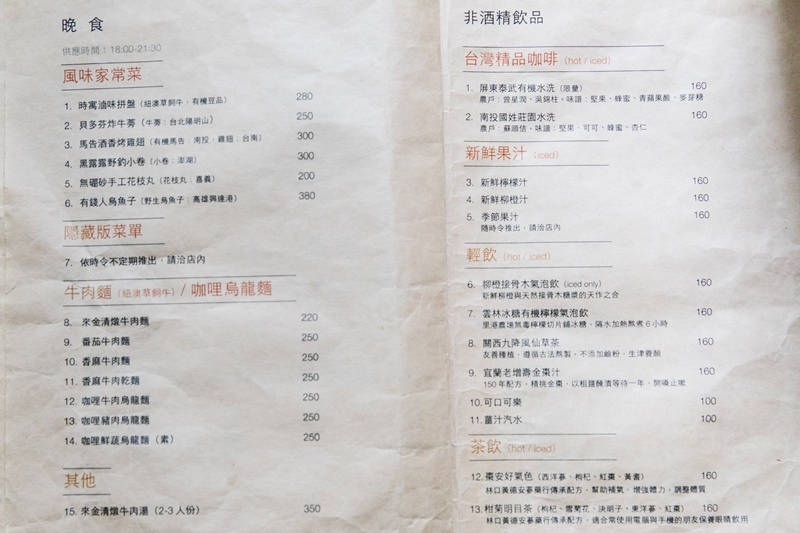 晚 食
供應時間：18:00-21:30
風味家常菜
1. 時寓滷味拼盤（紐澳草飼牛，有機豆品） 280
2. 貝多芬炸牛蒡（牛蒡：台北陽明山） 250
3. 馬告酒香烤雞翅（有機馬告：南投，雞翅：台南） 300
4. 黑露露野釣小卷（小卷：澎湖） 300
5. 無硼砂手工花枝丸（花枝丸：嘉義） 200
6. 有錢人烏魚子（野生烏魚子：高雄興達港） 380
隱藏版菜單
7. 依時令不定期推出，請洽店內
牛肉麵（紐澳草飼牛）/ 咖哩烏龍麵
8. 來金清燉牛肉麵 220
9. 番茄牛肉麵 250
10. 香麻牛肉麵 250
11. 香麻牛肉乾麵 250
12. 咖哩牛肉烏龍麵 250
13. 咖哩豬肉烏龍麵 250
14. 咖哩鮮蔬烏龍麵（素） 250
其他
15. 來金清燉牛肉湯（2-3 人份） 350
非酒精飲品
台灣精品咖啡（hot / iced）
1. 屏東泰武有機水洗（限量） 160
農戶：曾星潤、吳錦柱。味譜：堅果、蜂蜜、青蘋果酸、麥芽糖
2. 南投國姓莊園水洗 160
農戶：蘇順信。味譜：堅果、可可、蜂蜜、杏仁
新鮮果汁（iced）
3. 新鮮檸檬汁 160
4. 新鮮柳橙汁 160
5. 季節果汁 160
隨時令推出，請洽店內
輕飲（hot / iced）
6. 柳橙接骨木氣泡飲（iced only） 160
新鮮柳橙與天然接骨木糖漿的天作之合
7. 雲林冰糖有機檸檬氣泡飲 160
里港農場無毒檸檬切片鋪冰糖，隔水加熱熬煮 6 小時
8. 關西九降風仙草茶 160
友善種植，遵循古法熬製，不添加鹼粉，生津養顏
9. 宜蘭老增壽金棗汁 160
150 年配方，精挑金棗，以祖甕醃漬等待一年，開嗓止咳
10. 可口可樂 100
11. 薑汁汽水 100
茶飲（hot / iced）
12. 棗安好氣色（西洋蔘、枸杞、紅棗、黃耆） 160
林口黃德安蔘藥行傳承配方，幫助補氣，增強體力，調整體質
13. 柑菊明目茶（枸杞、雪菊花、決明子、東洋蔘、紅棗） 160
林口黃德安蔘藥行傳承配方，適合常使用電腦與手機的朋友保養眼睛飲用